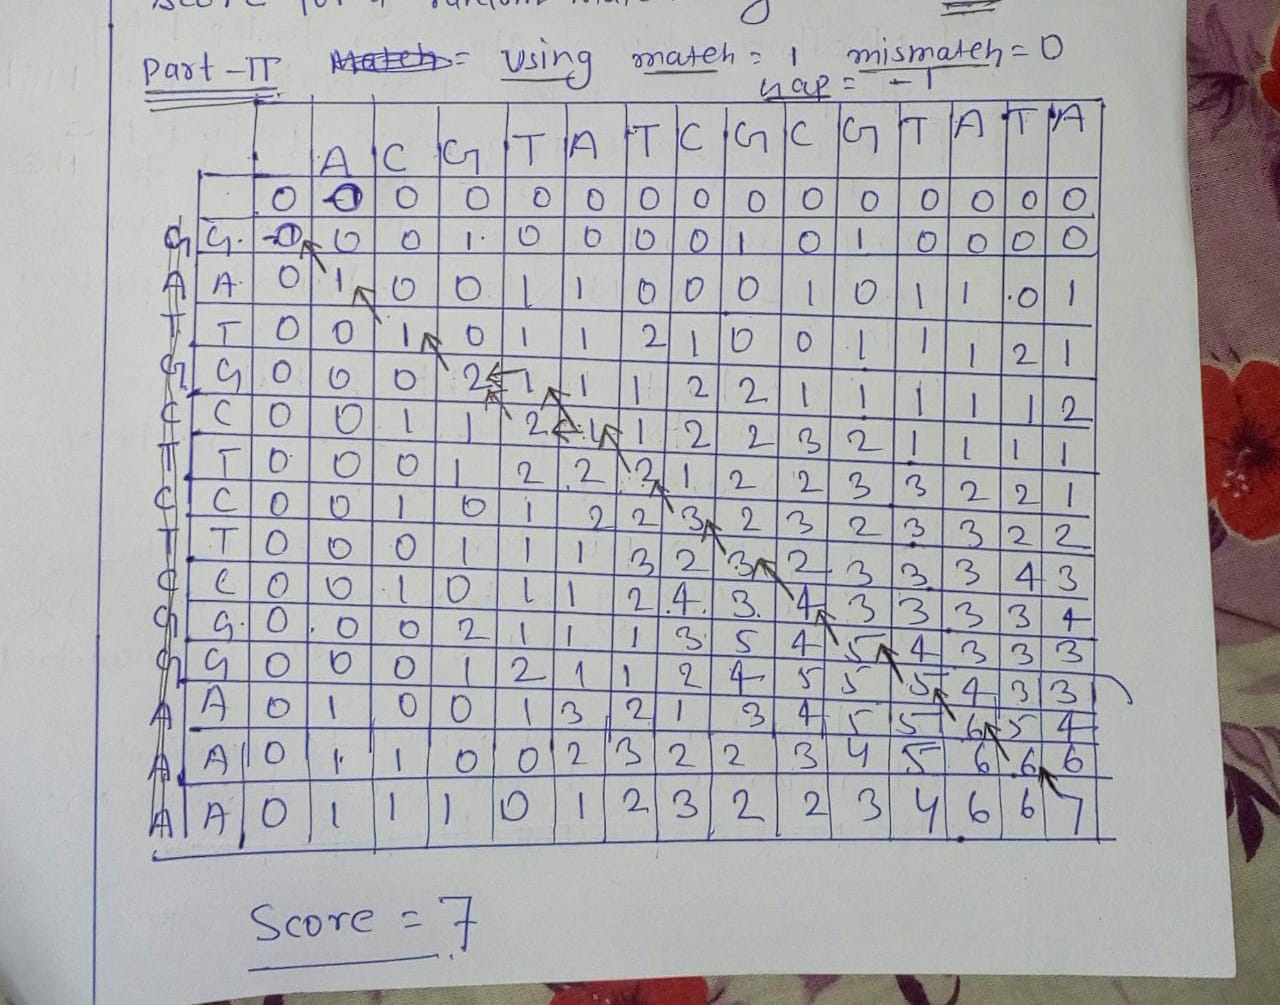 Part-II Match = using match = 1 mismatch = 0
gap = -1
A C G T A T C G C G T A T A
0 0 0 0 0 0 0 0 0 0 0 0 0 0 0
G G. 0 0 0 1. 0 0 0 0 1 0 1 0 0 0 0
A A. 0 1 0 0 1 1 0 0 0 1 0 1 1 .0 1
T T 0 0 1 0 1 1 2 1 0 0 1 1 1 2 1
G G 0 0 0 2 1 1 1 2 2 1 1 1 1 1 2
C C 0 0 1 1 2 1 1 2 2 3 2 1 1 1 1
T T 0 0 0 1 2 2 3 1 2 2 3 3 2 2 1
C C 0 0 1 0 1 2 2 3 2 3 2 3 3 2 2
T T 0 0 0 1 1 1 3 2 3 2 3 3 3 4 3
C C 0 0 1 0 1 1 2 4 3 4 3 3 3 3 4
G G. 0 0 0 2 1 1 1 3 5 4 5 4 3 3 3
G G 0 0 0 1 2 1 1 2 4 5 5 5 4 3 3
A A 0 1 0 0 1 3 2 1 3 4 5 5 6 5 4
A A 0 1 1 0 0 2 3 2 2 3 4 5 6 6 6
A A 0 1 1 1 0 1 2 3 2 2 3 4 6 6 7
Score = 7